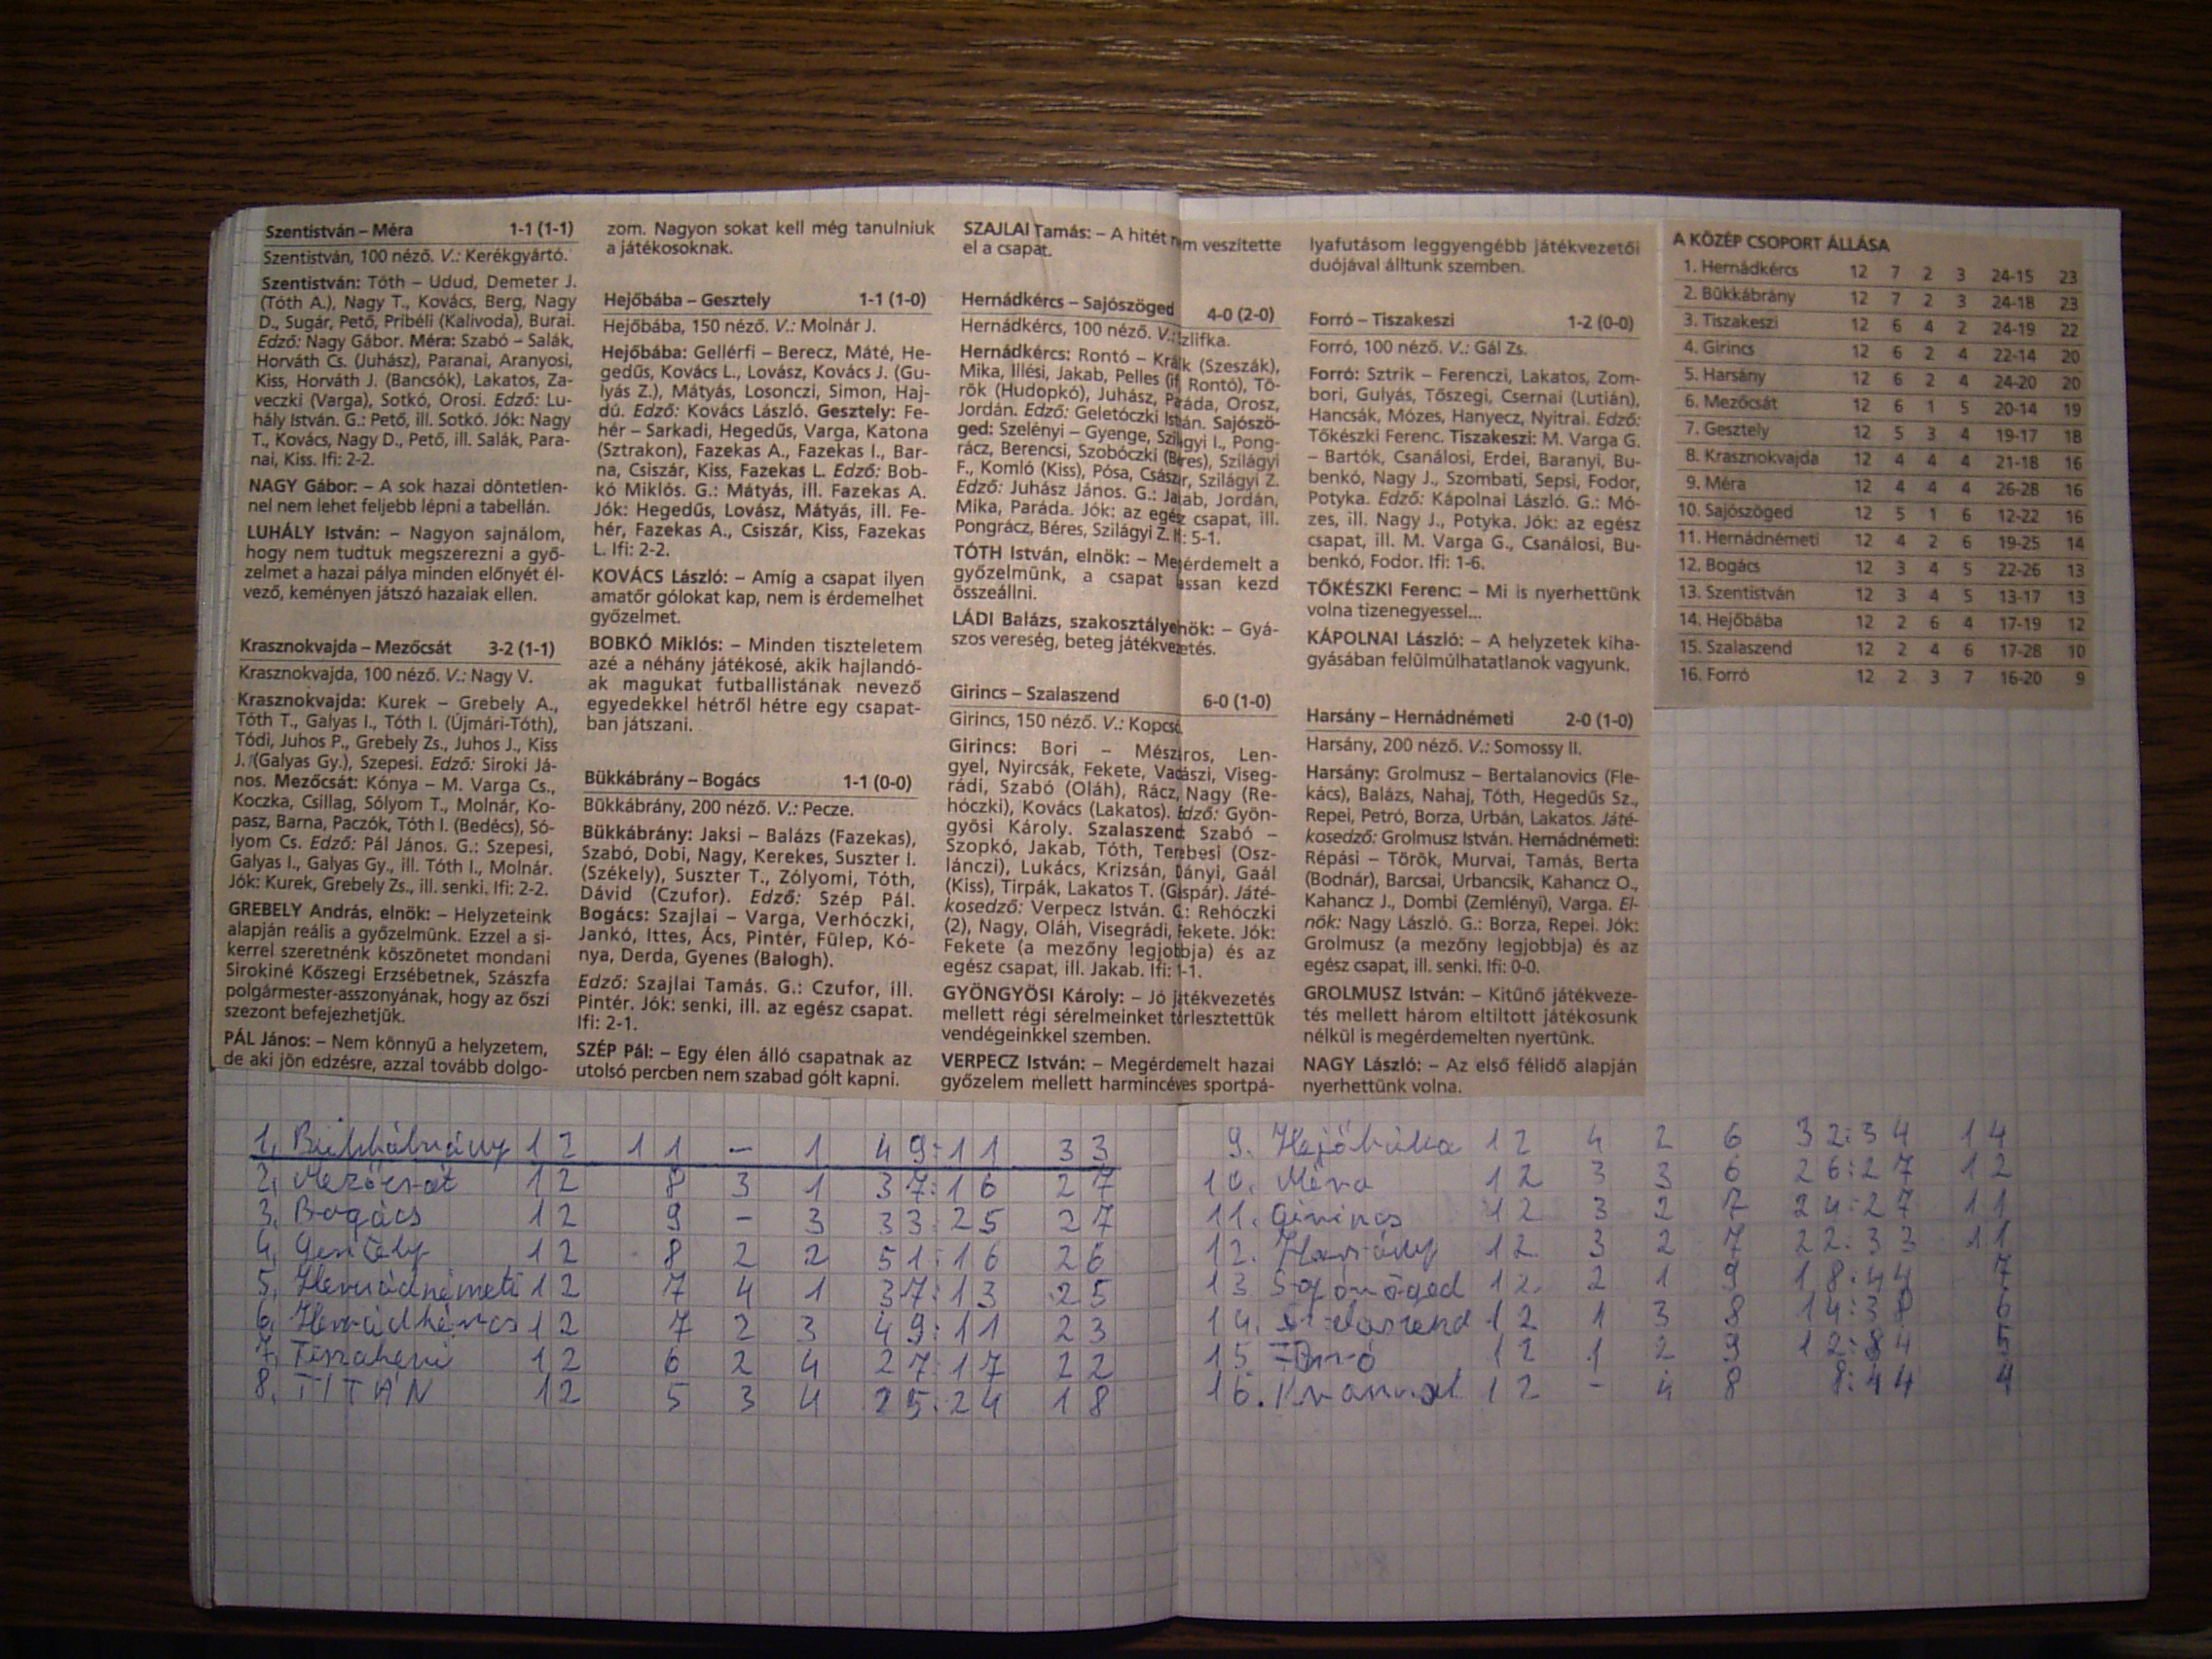 Szentistván – Méra 1-1 (1-1)
Szentistván, 100 néző. V.: Kerékgyártó.
Szentistván: Tóth – Udud, Demeter J.
(Tóth A.), Nagy T., Kovács, Berg, Nagy
D., Sugár, Pető, Pribéli (Kalivoda), Burai.
Edző: Nagy Gábor. Méra: Szabó – Salák,
Horváth Cs. (Juhász), Paranai, Aranyosi,
Kiss, Horváth J. (Bancsók), Lakatos, Za-
veczki (Varga), Sotkó, Orosi. Edző: Lu-
hály István. G.: Pető, ill. Sotkó. Jók: Nagy
T., Kovács, Nagy D., Pető, ill. Salák, Para-
nai, Kiss. Ifi: 2-2.
NAGY Gábor: – A sok hazai döntetlen-
nel nem lehet feljebb lépni a tabellán.
LUHÁLY István: – Nagyon sajnálom,
hogy nem tudtuk megszerezni a győ-
zelmet a hazai pálya minden előnyét él-
vező, keményen játszó hazaiak ellen.
Krasznokvajda – Mezőcsát 3-2 (1-1)
Krasznokvajda, 100 néző. V.: Nagy V.
Krasznokvajda: Kurek – Grebely A.,
Tóth T., Galyas I., Tóth I. (Újmári-Tóth),
Tódi, Juhos P., Grebely Zs., Juhos J., Kiss
J. (Galyas Gy.), Szepesi. Edző: Siroki Já-
nos. Mezőcsát: Kónya – M. Varga Cs.,
Koczka, Csillag, Sólyom T., Molnár, Ko-
pasz, Barna, Paczók, Tóth I. (Bedécs), Só-
lyom Cs. Edző: Pál János. G.: Szepesi,
Galyas I., Galyas Gy., ill. Tóth I., Molnár.
Jók: Kurek, Grebely Zs., ill. senki. Ifi: 2-2.
GREBELY András, elnök: – Helyzeteink
alapján reális a győzelmünk. Ezzel a si-
kerrel szeretnénk köszönetet mondani
Sirokiné Kőszegi Erzsébetnek, Szászfa
polgármester-asszonyának, hogy az őszi
szezont befejezhetjük.
PÁL János: – Nem könnyű a helyzetem,
de aki jön edzésre, azzal tovább dolgo-
zom. Nagyon sokat kell még tanulniuk
a játékosoknak.
Hejőbába – Gesztely 1-1 (1-0)
Hejőbába, 150 néző. V.: Molnár J.
Hejőbába: Gellérfi – Berecz, Máté, He-
gedűs, Kovács L., Lovász, Kovács J. (Gu-
lyás Z.), Mátyás, Losonczi, Simon, Haj-
dú. Edző: Kovács László. Gesztely: Fe-
hér – Sarkadi, Hegedűs, Varga, Katona
(Sztrakon), Fazekas A., Fazekas I., Bar-
na, Csiszár, Kiss, Fazekas L. Edző: Bob-
kó Miklós. G.: Mátyás, ill. Fazekas A.
Jók: Hegedűs, Lovász, Mátyás, ill. Fe-
hér, Fazekas A., Csiszár, Kiss, Fazekas
L. Ifi: 2-2.
KOVÁCS László: – Amíg a csapat ilyen
amatőr gólokat kap, nem is érdemelhet
győzelmet.
BOBKÓ Miklós: – Minden tiszteletem
azé a néhány játékosé, akik hajlandó-
ak magukat futballistának nevező
egyedekkel hétről hétre egy csapat-
ban játszani.
Bükkábrány – Bogács 1-1 (0-0)
Bükkábrány, 200 néző. V.: Pecze.
Bükkábrány: Jaksi – Balázs (Fazekas),
Szabó, Dobi, Nagy, Kerekes, Suszter I.
(Székely), Suszter T., Zólyomi, Tóth,
Dávid (Czufor). Edző: Szép Pál.
Bogács: Szajlai – Varga, Verhóczki,
Jankó, Ittes, Ács, Pintér, Fülep, Kó-
nya, Derda, Gyenes (Balogh).
Edző: Szajlai Tamás. G.: Czufor, ill.
Pintér. Jók: senki, ill. az egész csapat.
Ifi: 2-1.
SZÉP Pál: – Egy élen álló csapatnak az
utolsó percben nem szabad gólt kapni.
SZAJLAI Tamás: – A hitét nem veszítette
el a csapat.
Hernádkércs – Sajószöged 4-0 (2-0)
Hernádkércs, 100 néző. V.: Izlifka.
Hernádkércs: Rontó – Králik (Szeszák),
Mika, Illési, Jakab, Pelles (ifj. Rontó), Tö-
rök (Hudopkó), Juhász, Paráda, Orosz,
Jordán. Edző: Geletóczki István. Sajószö-
ged: Szelényi – Gyenge, Szilágyi I., Pong-
rácz, Berencsi, Szobóczki (Béres), Szilágyi
F., Komló (Kiss), Pósa, Császár, Szilágyi Z.
Edző: Juhász János. G.: Jakab, Jordán,
Mika, Paráda. Jók: az egész csapat, ill.
Pongrácz, Béres, Szilágyi Z. Ifi: 5-1.
TÓTH István, elnök: – Megérdemelt a
győzelmünk, a csapat lassan kezd
összeállni.
LÁDI Balázs, szakosztályelnök: – Gyá-
szos vereség, beteg játékvezetés.
Girincs – Szalaszend 6-0 (1-0)
Girincs, 150 néző. V.: Kopcsó.
Girincs: Bori – Mészáros, Len-
gyel, Nyircsák, Fekete, Vadászi, Viseg-
rádi, Szabó (Oláh), Rácz, Nagy (Re-
hóczki), Kovács (Lakatos). Edző: Gyön-
gyösi Károly. Szalaszend: Szabó –
Szopkó, Jakab, Tóth, Terebesi (Osz-
lánczi), Lukács, Krizsán, Dányi, Gaál
(Kiss), Tirpák, Lakatos T. (Gáspár). Játé-
kosedző: Verpecz István. G.: Rehóczki
(2), Nagy, Oláh, Visegrádi, Fekete. Jók:
Fekete (a mezőny legjobbja) és az
egész csapat, ill. Jakab. Ifi: 1-1.
GYÖNGYÖSI Károly: – Jó játékvezetés
mellett régi sérelmeinket törlesztettük
vendégeinkkel szemben.
VERPECZ István: – Megérdemelt hazai
győzelem mellett harmincéves sportpá-
lyafutásom leggyengébb játékvezetői
duójával álltunk szemben.
Forró – Tiszakeszi 1-2 (0-0)
Forró, 100 néző. V.: Gál Zs.
Forró: Sztrik – Ferenczi, Lakatos, Zom-
bori, Gulyás, Tőszegi, Csernai (Lutián),
Hancsák, Mózes, Hanyecz, Nyitrai. Edző:
Tőkészki Ferenc. Tiszakeszi: M. Varga G.
– Bartók, Csanálosi, Erdei, Baranyi, Bu-
benkó, Nagy J., Szombati, Sepsi, Fodor,
Potyka. Edző: Kápolnai László. G.: Mó-
zes, ill. Nagy J., Potyka. Jók: az egész
csapat, ill. M. Varga G., Csanálosi, Bu-
benkó, Fodor. Ifi: 1-6.
TŐKÉSZKI Ferenc: – Mi is nyerhettünk
volna tizenegyessel...
KÁPOLNAI László: – A helyzetek kiha-
gyásában felülmúlhatatlanok vagyunk.
Harsány – Hernádnémeti 2-0 (1-0)
Harsány, 200 néző. V.: Somossy II.
Harsány: Grolmusz – Bertalanovics (Fle-
kács), Balázs, Nahaj, Tóth, Hegedűs Sz.,
Repei, Petró, Borza, Urbán, Lakatos. Játé-
kosedző: Grolmusz István. Hernádnémeti:
Répási – Török, Murvai, Tamás, Berta
(Bodnár), Barcsai, Urbancsik, Kahancz O.,
Kahancz J., Dombi (Zemlényi), Varga. El-
nök: Nagy László. G.: Borza, Repei. Jók:
Grolmusz (a mezőny legjobbja) és az
egész csapat, ill. senki. Ifi: 0-0.
GROLMUSZ István: – Kitűnő játékveze-
tés mellett három eltiltott játékosunk
nélkül is megérdemelten nyertünk.
NAGY László: – Az első félidő alapján
nyerhettünk volna.
A KÖZÉP CSOPORT ÁLLÁSA
1. Hernádkércs 12 7 2 3 24-15 23
2. Bükkábrány 12 7 2 3 24-18 23
3. Tiszakeszi 12 6 4 2 24-19 22
4. Girincs 12 6 2 4 22-14 20
5. Harsány 12 6 2 4 24-20 20
6. Mezőcsát 12 6 1 5 20-14 19
7. Gesztely 12 5 3 4 19-17 18
8. Krasznokvajda 12 4 4 4 21-18 16
9. Méra 12 4 4 4 26-28 16
10. Sajószöged 12 5 1 6 12-22 16
11. Hernádnémeti 12 4 2 6 19-25 14
12. Bogács 12 3 4 5 22-26 13
13. Szentistván 12 3 4 5 13-17 13
14. Hejőbába 12 2 6 4 17-19 12
15. Szalaszend 12 2 4 6 17-28 10
16. Forró 12 2 3 7 16-20 9
1. Bükkábrány 12 11 – 1 49:11 33
2. Mezőcsát 12 8 3 1 37:16 27
3. Bogács 12 9 – 3 33:25 27
4. Gesztely 12 8 2 2 51:16 26
5. Hernádnémeti 12 7 4 1 37:13 25
6. Hernádkércs 12 7 2 3 49:11 23
7. Tiszakeszi 12 6 2 4 27:17 22
8. TITÁN 12 5 3 4 25:24 18
9. Hejőbába 12 4 2 6 32:34 14
10. Méra 12 3 3 6 26:27 12
11. Girincs 12 3 2 7 24:27 11
12. Harsány 12 3 2 7 22:33 11
13 Sajószöged 12 2 1 9 18:44 7
14. Szalaszend 12 1 3 8 14:38 6
15 Forró 12 1 2 9 12:84 5
16. 12 – 4 8 8:44 4